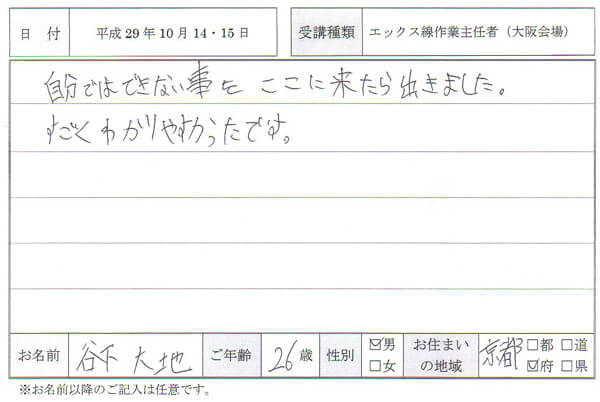 日付 平成29年10月14・15日 受講種類 エックス線作業主任者（大阪会場）
自分ではできない事を ここに来たら出きました。
すごくわかりやすかったです。
お名前 谷下 大地 ご年齢 26歳 性別 ☑男 □女 お住まいの地域 京都 □都 □道 ☑府 □県
※お名前以降のご記入は任意です。